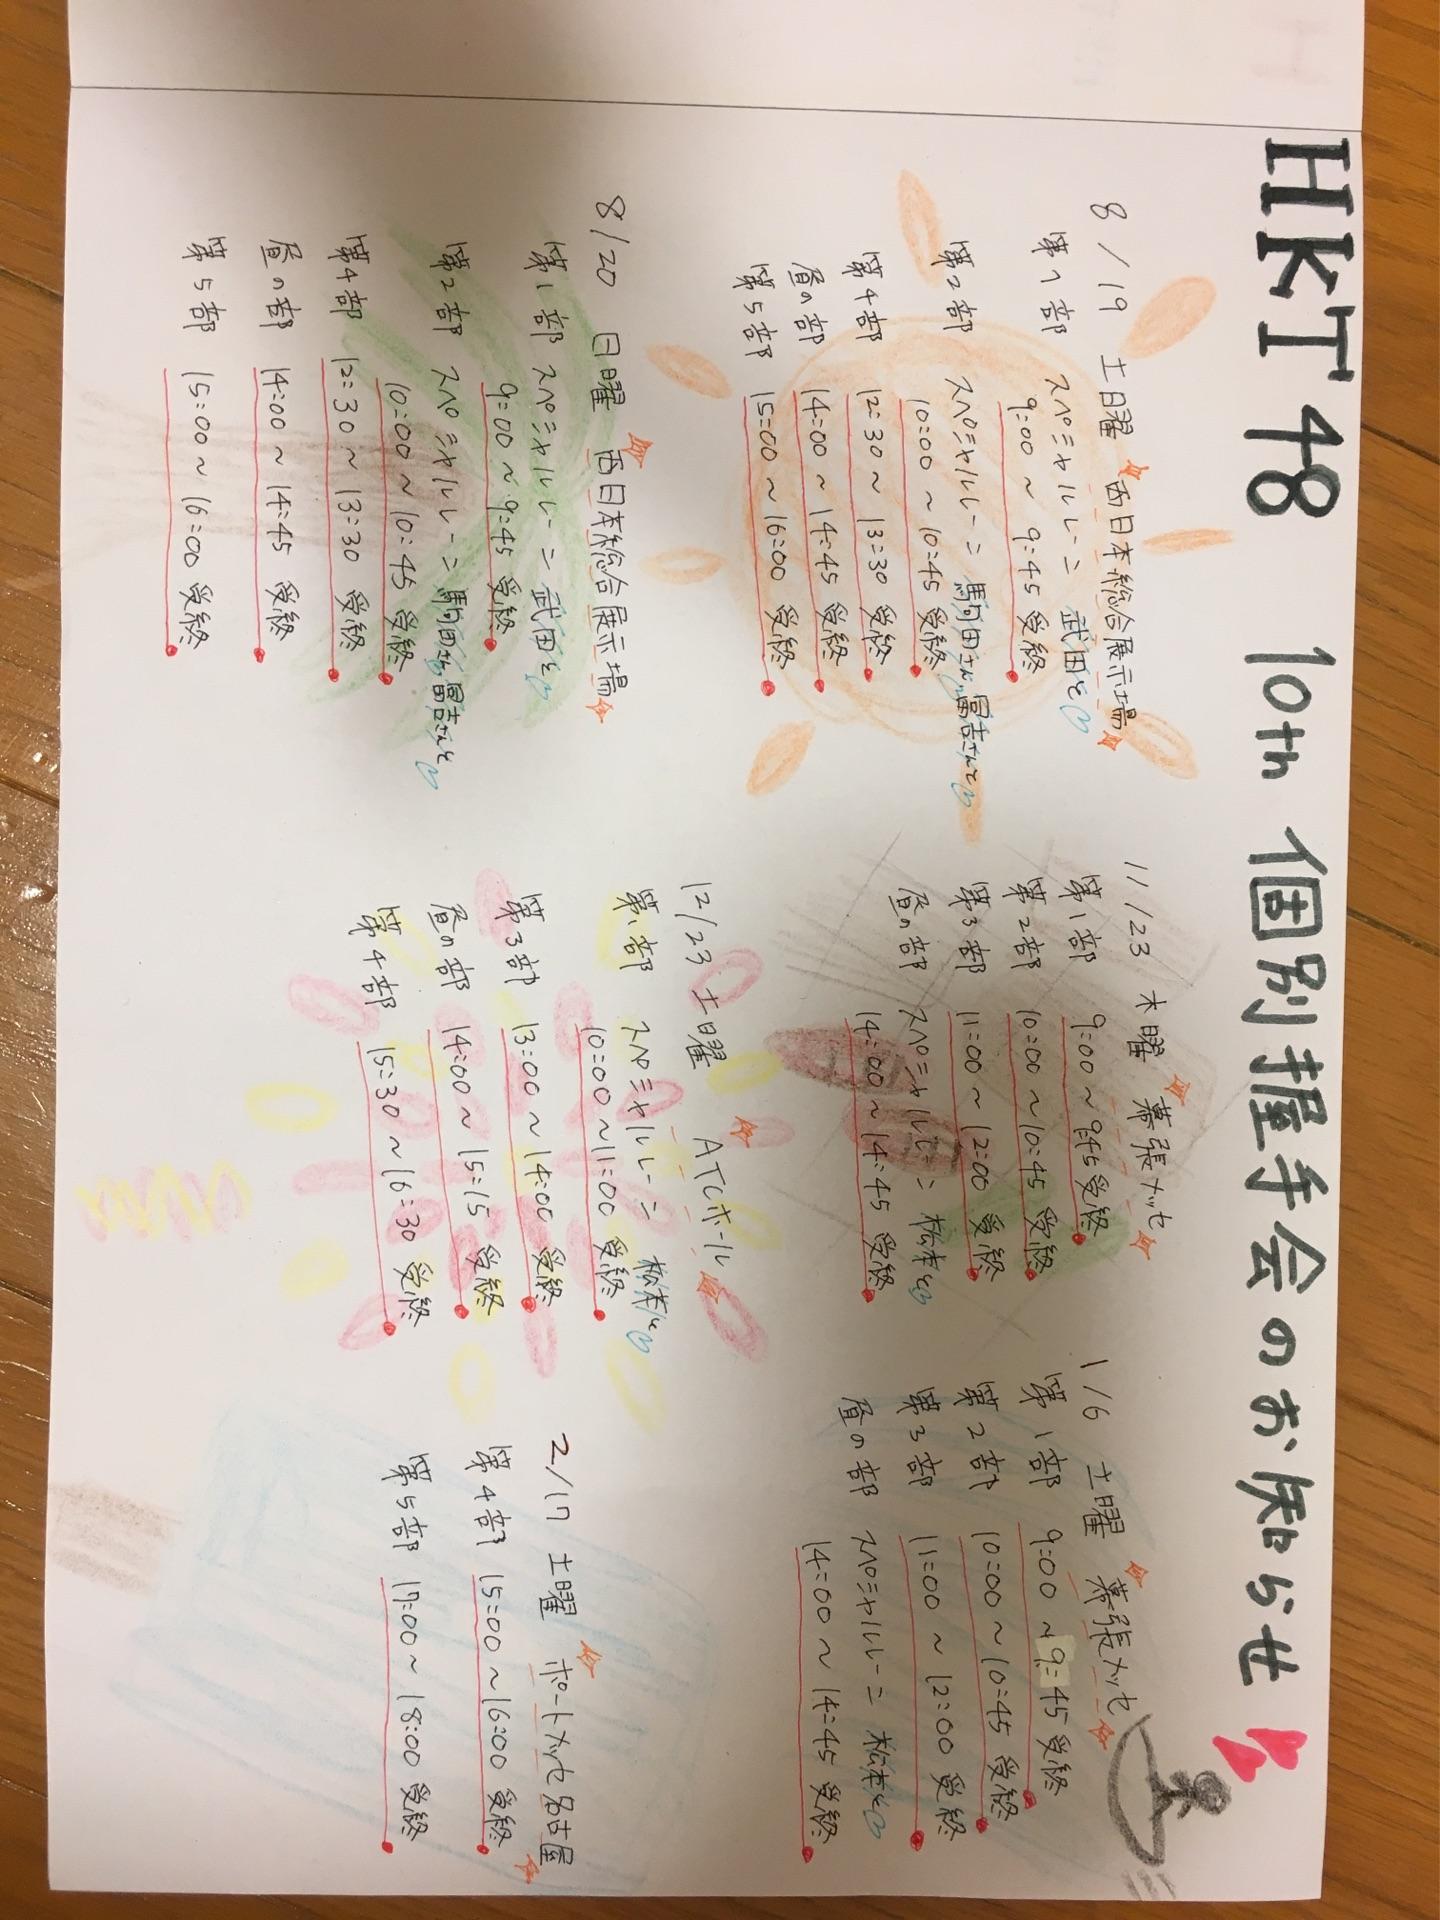 HKT48 10th 個別握手会のお知らせ
8/19 土曜 西日本総合展示場
第1部 スペシャルレーン 武田と
9:00～9:45 受終
第2部 スペシャルレーン 駒田さん冨吉さんと
10:00～10:45 受終
第4部 12:30～13:30 受終
昼の部 14:00～14:45 受終
第5部 15:00～16:00 受終
8/20 日曜 西日本総合展示場
第1部 スペシャルレーン 武田と
9:00～9:45 受終
第2部 スペシャルレーン 駒田さん冨吉さんと
10:00～10:45 受終
第4部 12:30～13:30 受終
昼の部 14:00～14:45 受終
第5部 15:00～16:00 受終
11/23 木曜 幕張メッセ
第1部 9:00～9:45 受終
第2部 10:00～10:45 受終
第3部 11:00～12:00 受終
昼の部 スペシャルレーン 松本と
14:00～14:45 受終
12/23 土曜 ATCホール
第1部 スペシャルレーン 松本と
10:00～11:00 受終
第3部 13:00～14:00 受終
昼の部 14:00～15:15 受終
第4部 15:30～16:30 受終
1/6 土曜 幕張メッセ
第1部 9:00～9:45 受終
第2部 10:00～10:45 受終
第3部 11:00～12:00 受終
昼の部 スペシャルレーン 松本と
14:00～14:45 受終
2/17 土曜 ポートメッセ名古屋
第4部 15:00～16:00 受終
第5部 17:00～18:00 受終